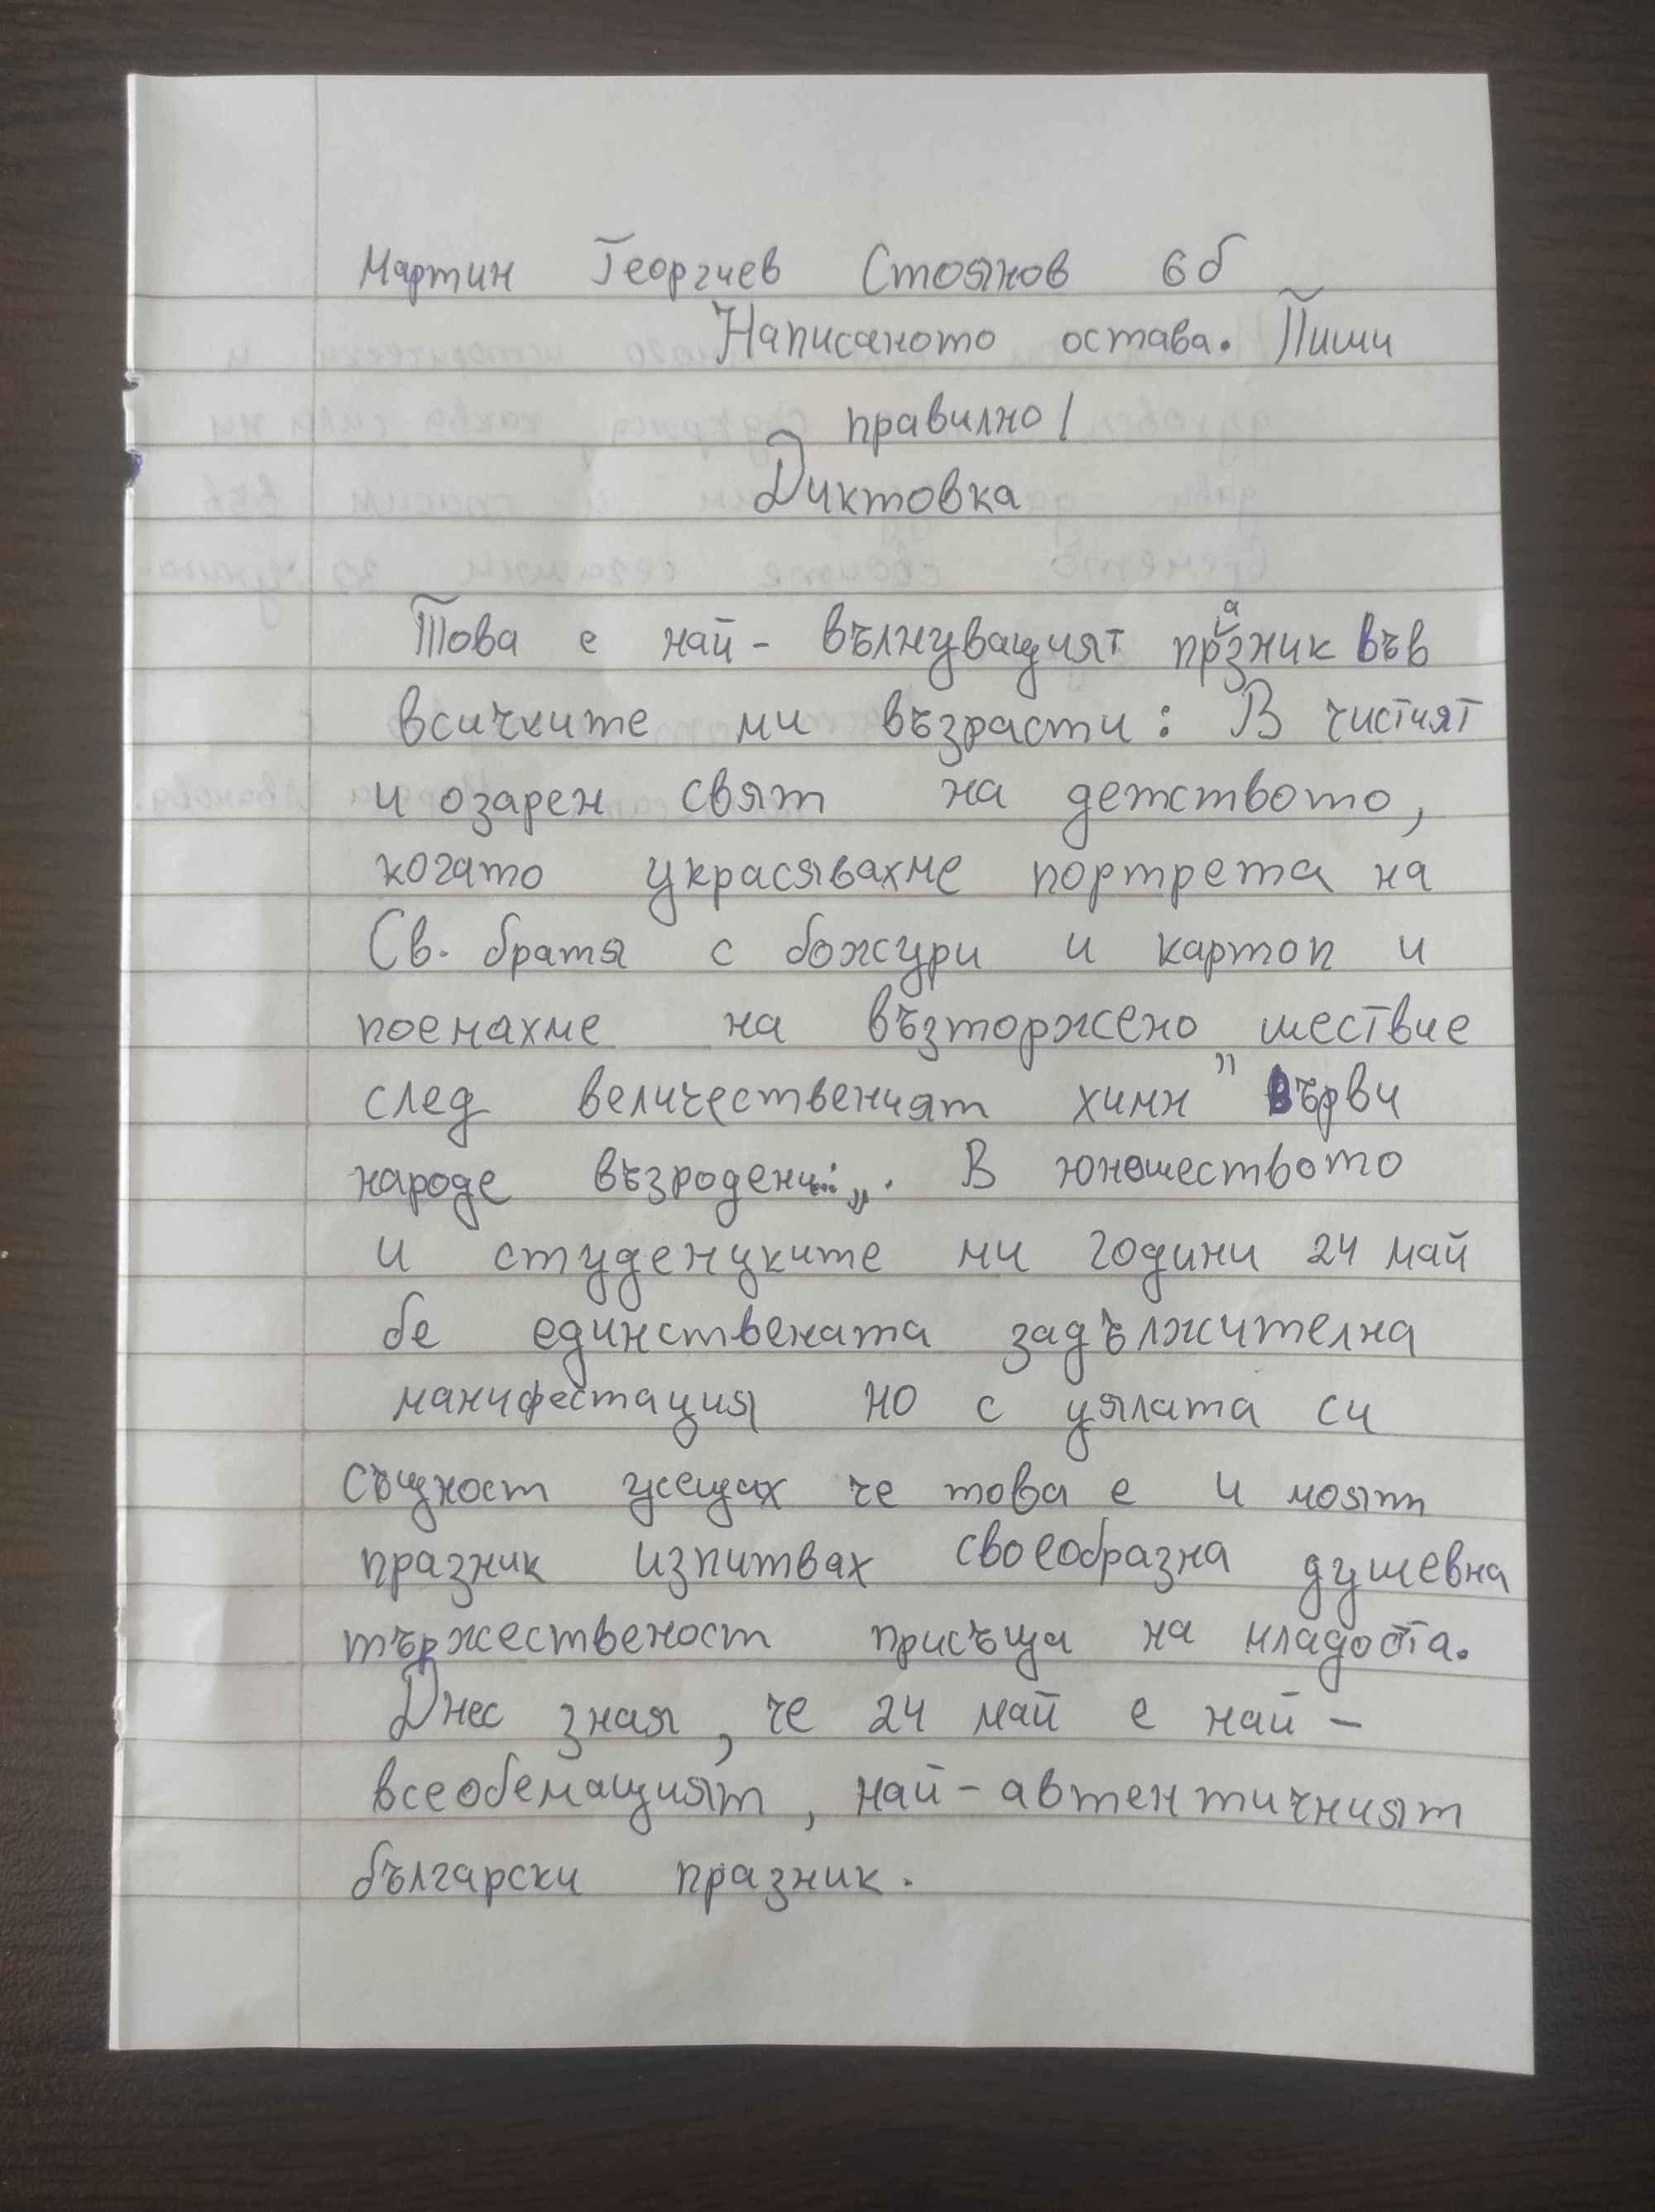 Мартин Георгиев Стоянов 6б
Написаното остава. Пиши
правилно!
Диктовка
Това е най- вълнуващият празник във
всичките ми възрасти: В чистият
и озарен свят на детството,
когато украсявахме портрета на
Св. братя с божури и картоп и
поемахме на възторжено шествие
след величественият химн " Върви
народе възродени...„. В юношеството
и студенцките ми години 24 май
бе единствената задължителна
манифестация но с цялата си
същност усещах че това е и моят
празник изпитвах своеобразна душевна
тържественост присъща на младостта.
Днес зная, че 24 май е най -
всеобемащият, най-автентичният
български празник.